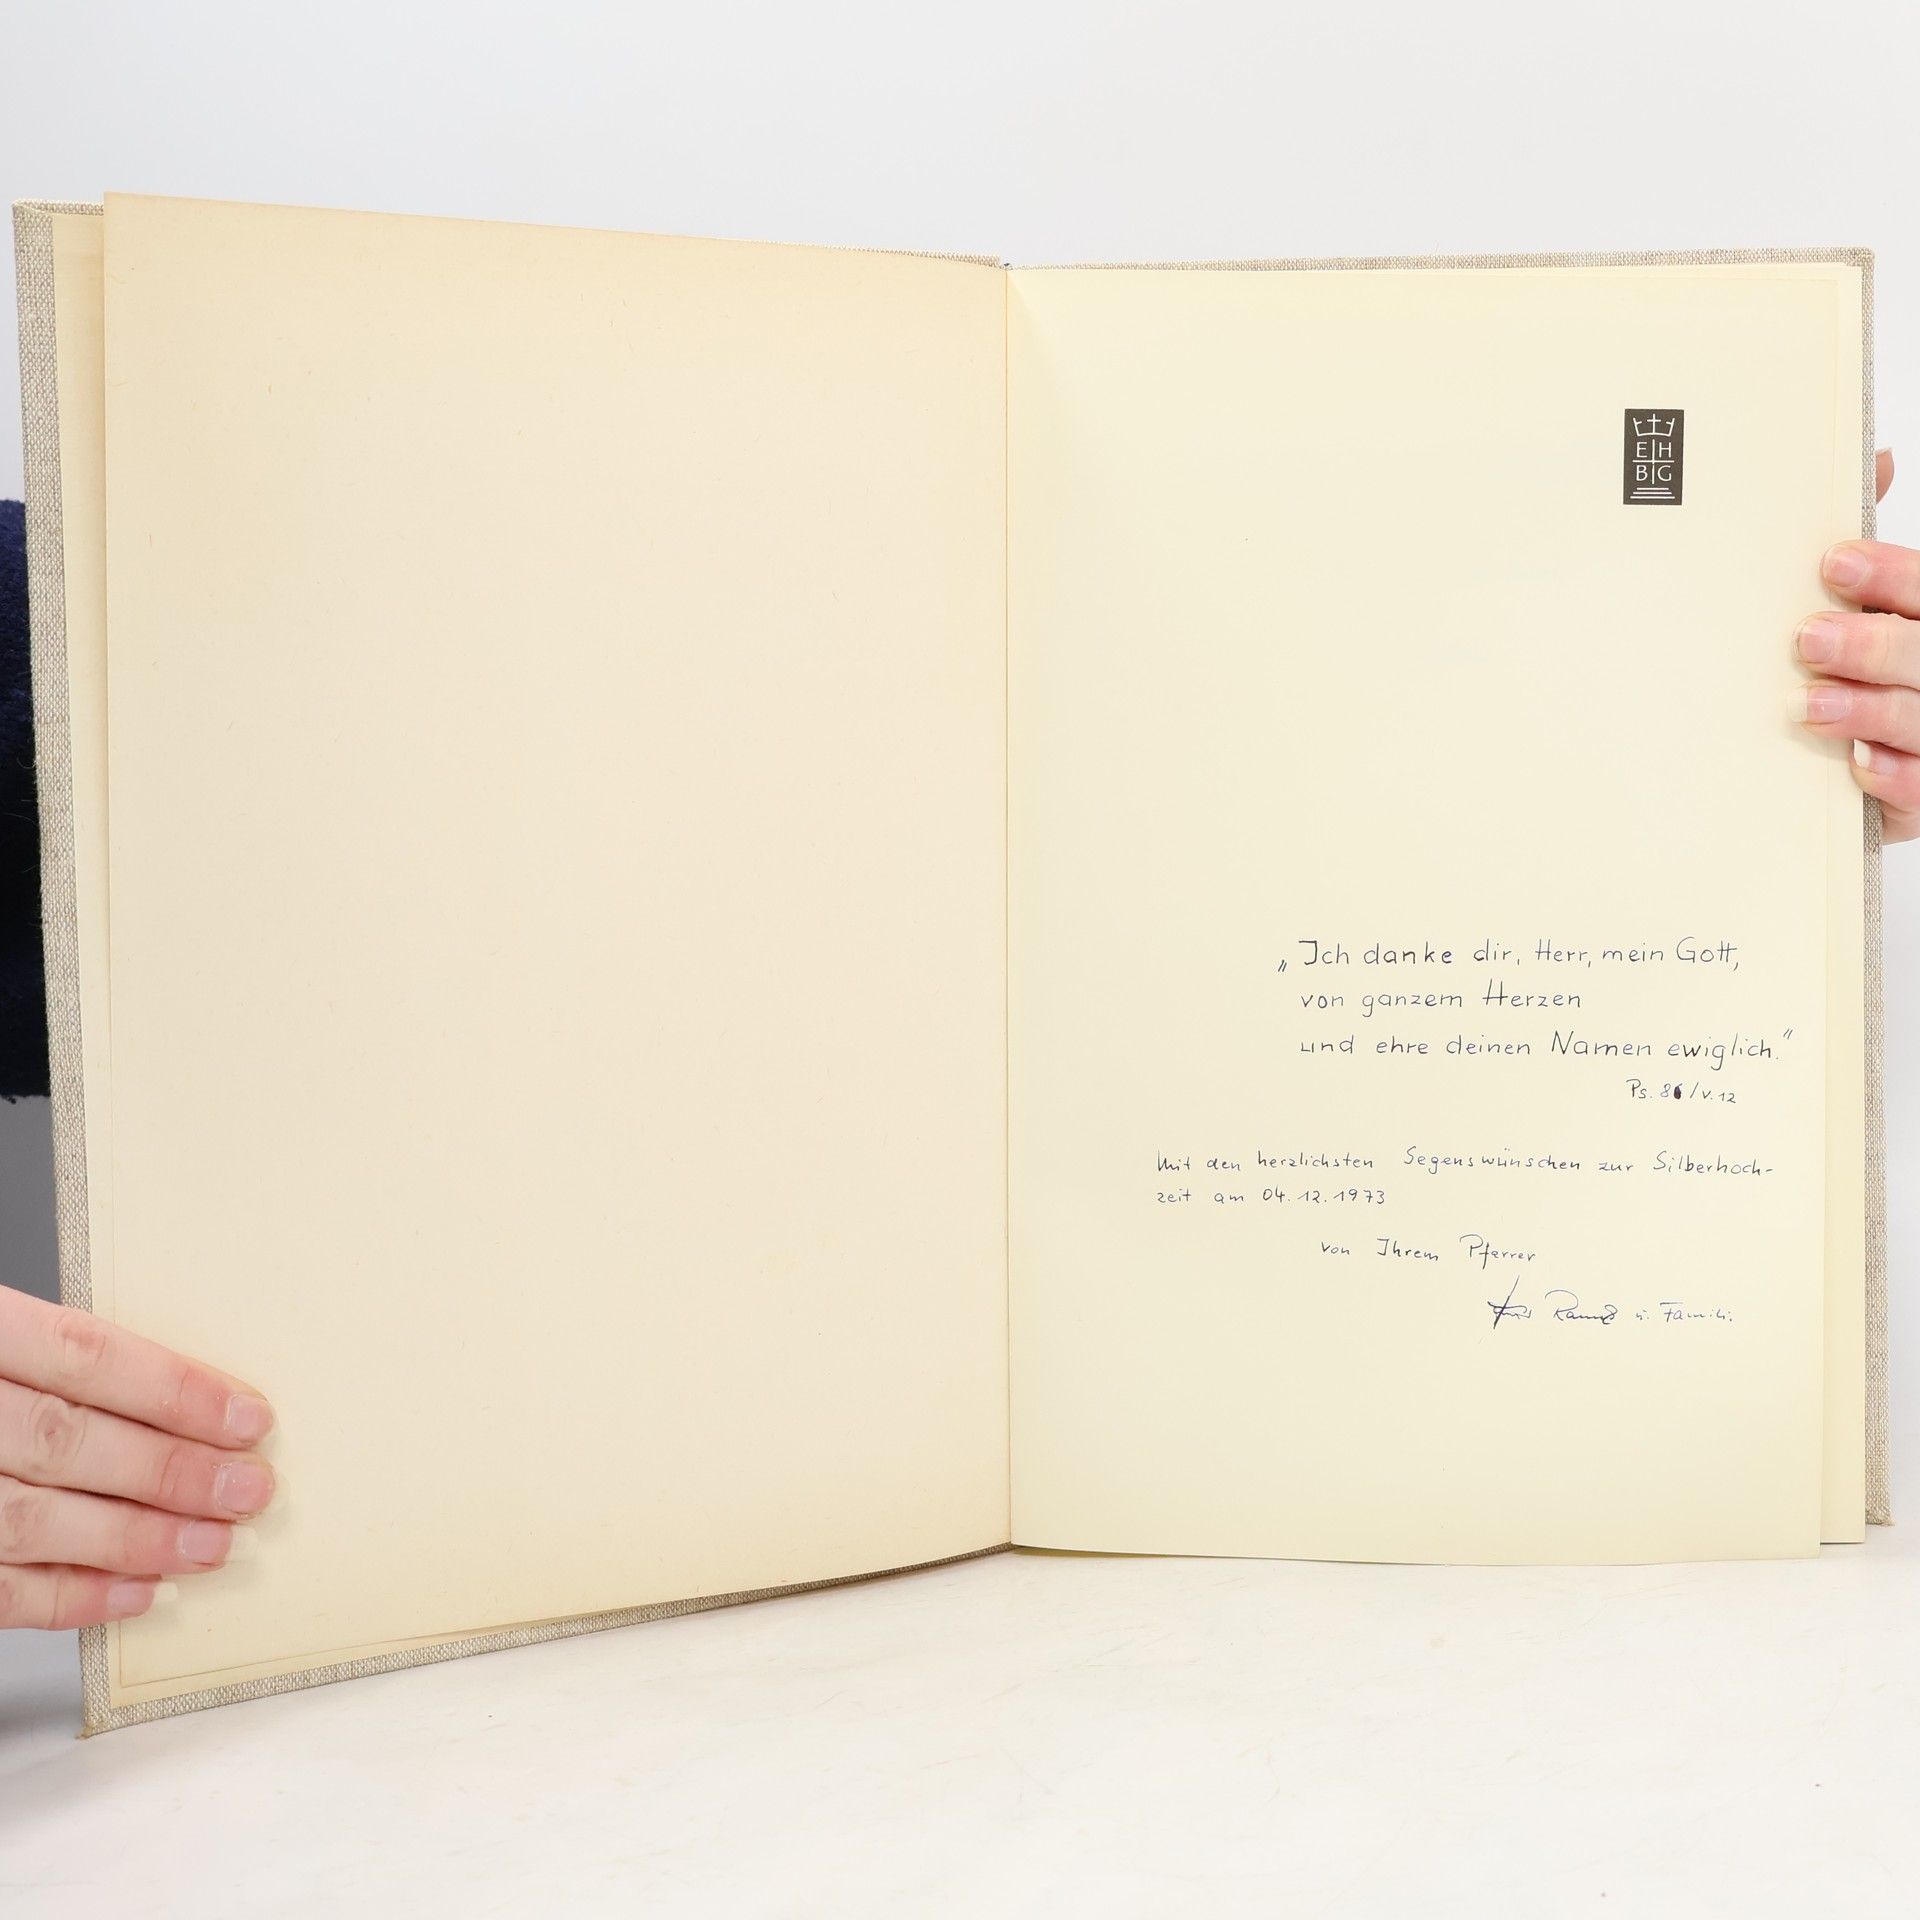 EH
BG
„Ich danke dir, Herr, mein Gott,
von ganzem Herzen
und ehre deinen Namen ewiglich."
Ps. 86 / V. 12
Mit den herzlichsten Segenswünschen zur Silberhoch-
zeit am 04.12.1973
von Ihrem Pfarrer
u. Famili.